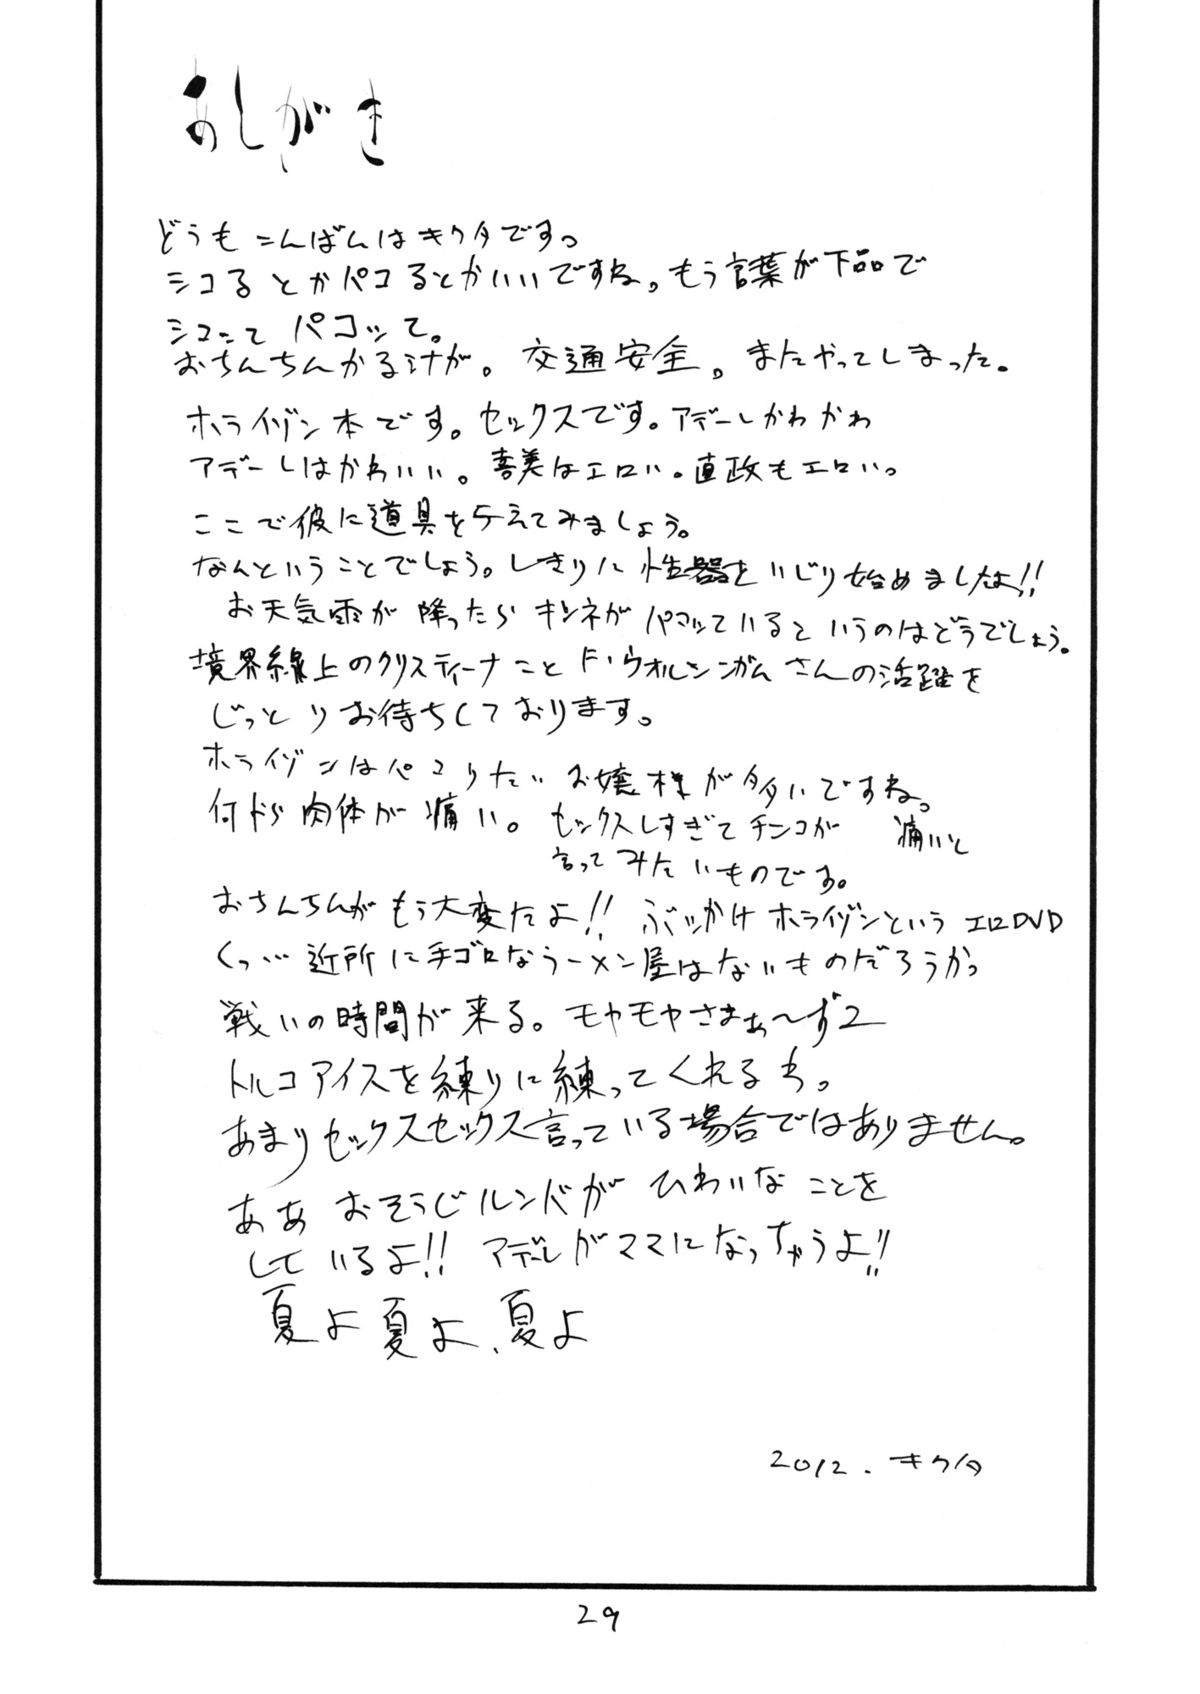 あしがき
どうもこんばんはキクタです。
シコるとかパコるとかいいですね。もう言葉が下品で
シコって パコッて。
おちんちんかる汁が。交通安全。またやってしまった。
ホライゾン本です。セックスです。アデーレかわかわ
アデーレはかわいい。喜美はエロい。直政もエロい。
ここで彼に道具を与えてみましょう。
なんということでしょう。しきりに性器をいじり始めましたよ!!
お天気雨が降ったらキツネがパコッているというのはどうでしょう。
境界線上のクリスティーナこと F・ウオルシンガムさんの活躍を
じっとりお待ちしております。
ホライゾンはパコりたいお嬢様が多いですね。
何から肉体が痛い。セックスしすぎてチンコが 痛いと
言ってみたいものです。
おちんちんがもう大変だよ!! ぶッかけホライゾンというエロDVD
くっ… 近所に手ゴロなラーメン屋はないものだろうか。
戦いの時間が来る。モヤモヤさまぁ〜ず2
トルコアイスを練りに練ってくれるわ。
あまりセックスセックス言っている場合ではありません。
ああ おそうじルンバがひわいなことを
しているよ!! アデーレがママになっちゃうよ!!
夏よ夏よ、夏よ
2012. キクタ
29